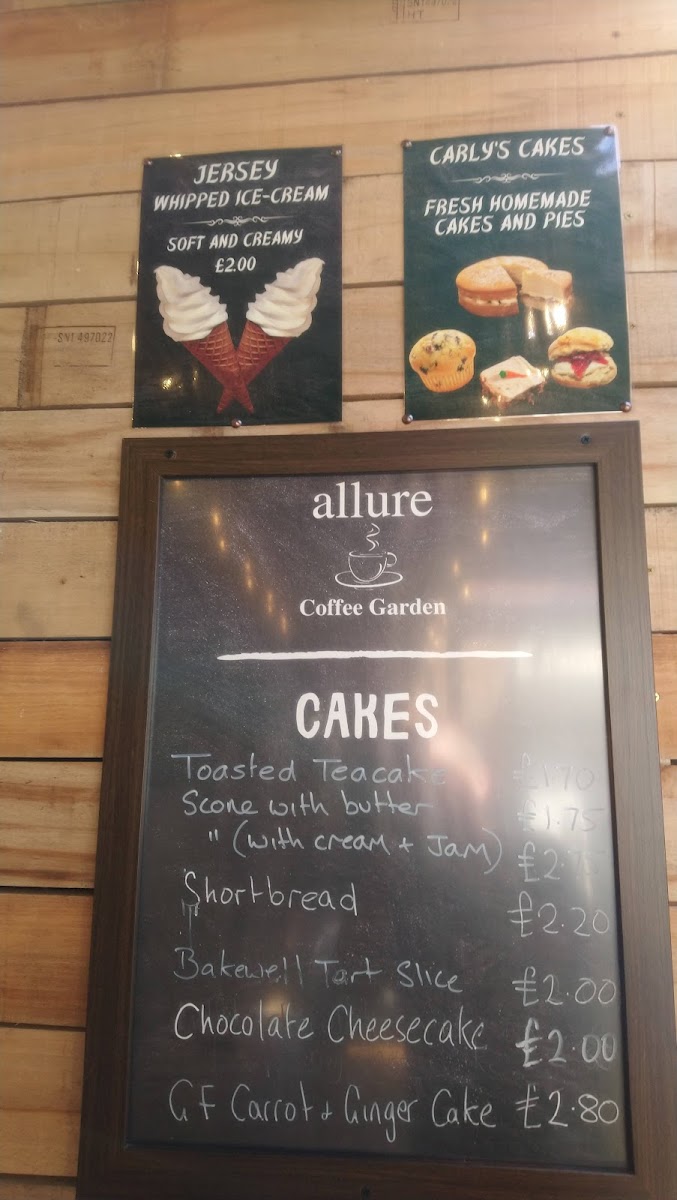 JERSEY
WHIPPED ICE-CREAM
SOFT AND CREAMY
£2.00
CARLY'S CAKES
FRESH HOMEMADE
CAKES AND PIES
SNI 497022
allure
Coffee Garden
CAKES
Toasted Teacake £1.70
Scone with butter £1.75
" (with cream + Jam) £2.75
Shortbread £2.20
Bakewell Tart Slice £2.00
Chocolate Cheesecake £2.00
GF Carrot + Ginger Cake £2.80